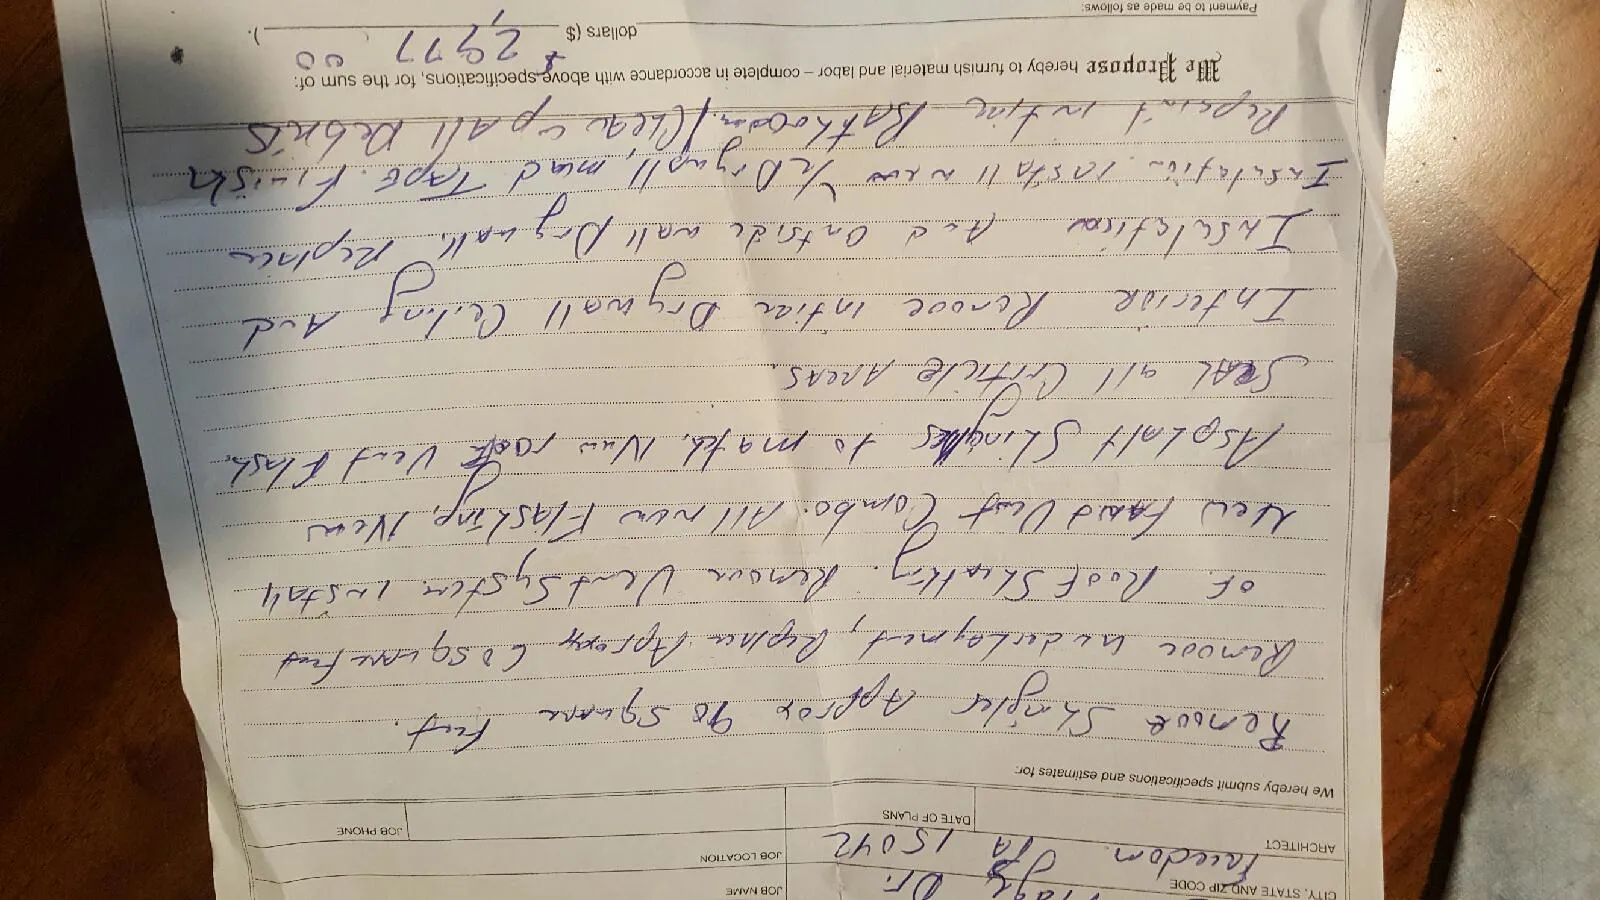 Dr.
CITY, STATE AND ZIP CODE
JOB NAME
Freedom. PA 15042
JOB LOCATION
ARCHITECT
DATE OF PLANS
JOB PHONE
We hereby submit specifications and estimates for:
Remove Shingles Approx 90 square Feet.
Remove underlayment, Replace Aproxx 60 square Feet
OF Roof Sheathing. Remove Vent System. Install
New Fan Vent Combo. All new Flashing, New
Asphalt Shingles to match. New roof Vent Flash.
Seal all Criticle Areas.
Interior Remove intire Drywall Ceiling And
Insulation And Outside wall Drywall. Replace
Insulation. install new 1/2 Drywall, mud TAPE. Finish
Repaint intire Bathroom./Clean up All Debris
We Propose hereby to furnish material and labor – complete in accordance with above specifications, for the sum of:
$2,977 00
dollars ($ ).
Payment to be made as follows: